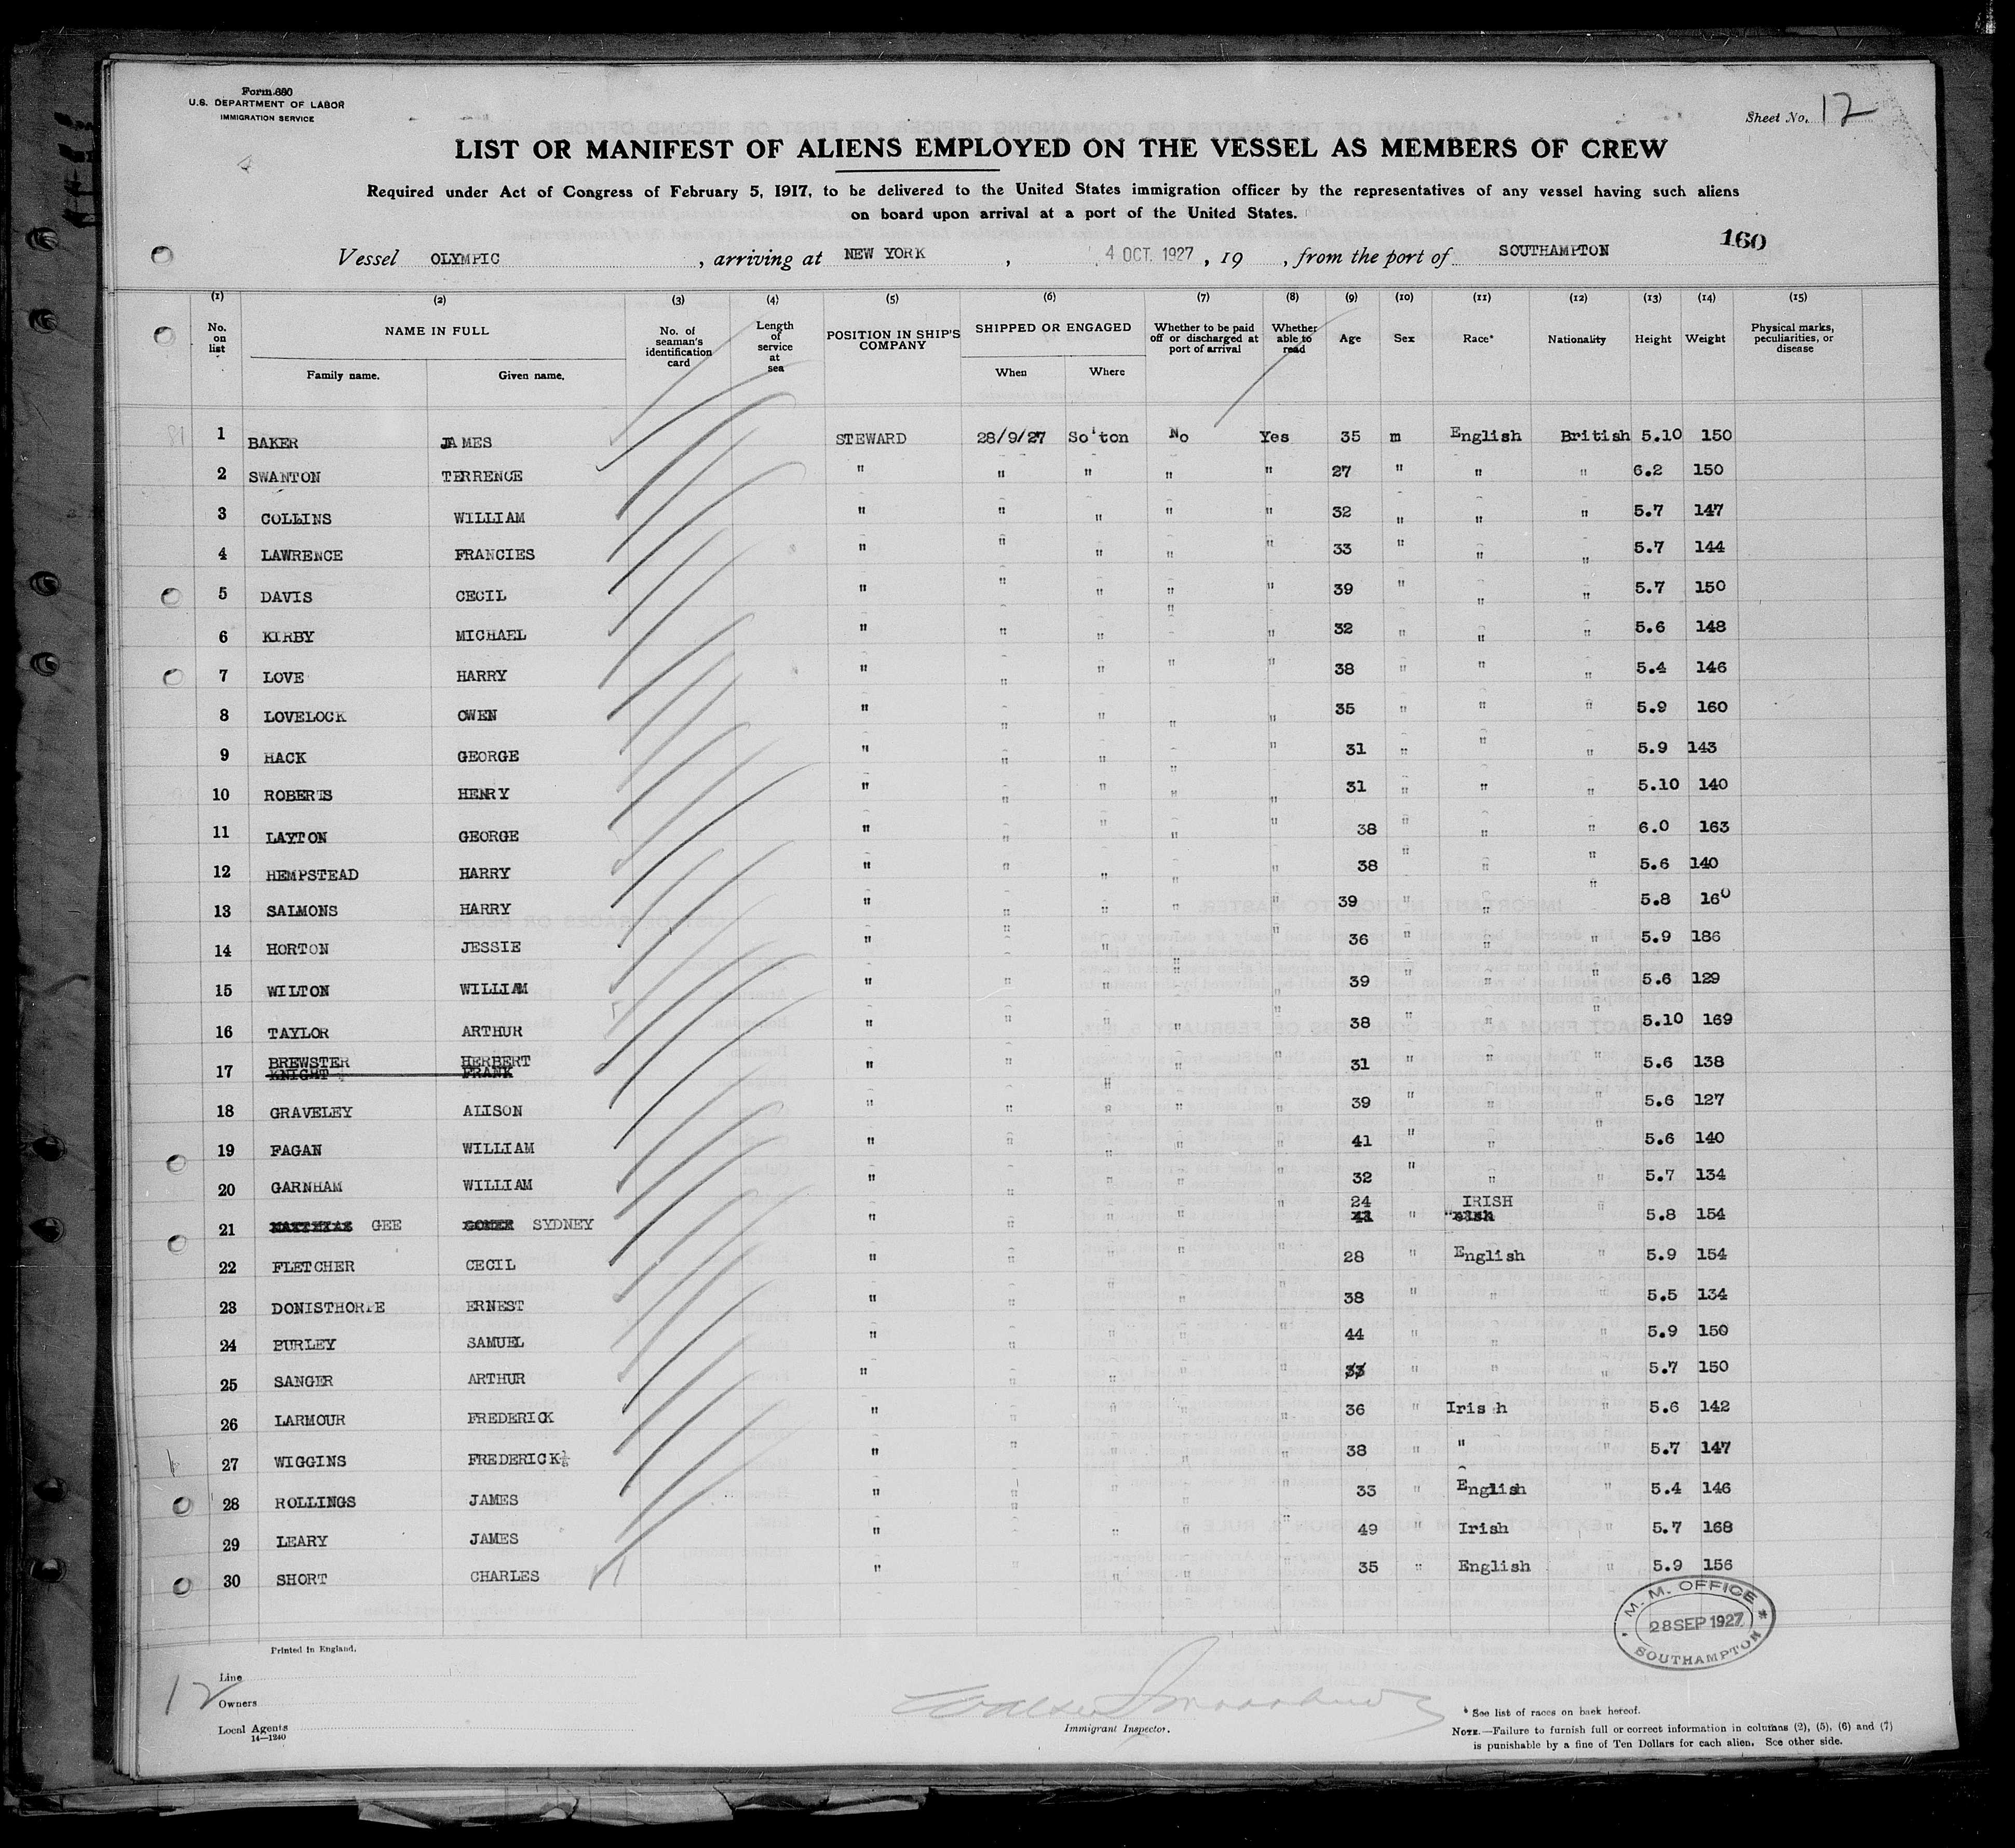 Form 680
U.S. DEPARTMENT OF LABOR
IMMIGRATION SERVICE
Sheet No. 12
LIST OR MANIFEST OF ALIENS EMPLOYED ON THE VESSEL AS MEMBERS OF CREW
Required under Act of Congress of February 5, 1917, to be delivered to the United States immigration officer by the representatives of any vessel having such aliens
on board upon arrival at a port of the United States.
160
Vessel OLYMPIC , arriving at NEW YORK , 4 OCT. 1927 , 19 , from the port of SOUTHAMPTON
(1) (2) (3) (4) (5) (6) (7) (8) (9) (10) (11) (12) (13) (14) (15)
No. on list NAME IN FULL Family name. Given name. No. of seaman's identification card Length of service at sea POSITION IN SHIP'S COMPANY SHIPPED OR ENGAGED When Where Whether to be paid off or discharged at port of arrival Whether able to read Age Sex Race* Nationality Height Weight Physical marks, peculiarities, or disease
1 BAKER JAMES STEWARD 28/9/27 So'ton No Yes 35 m English British 5.10 150
2 SWANTON TERRENCE " " " " " 27 " " " 6.2 150
3 COLLINS WILLIAM " " " " " 32 " " " 5.7 147
4 LAWRENCE FRANCIES " " " " " 33 " " " 5.7 144
5 DAVIS CECIL " " " " " 39 " " " 5.7 150
6 KIRBY MICHAEL " " " " " 32 " " " 5.6 148
7 LOVE HARRY " " " " " 38 " " " 5.4 146
8 LOVELOCK OWEN " " " " " 35 " " " 5.9 160
9 HACK GEORGE " " " " " 31 " " " 5.9 143
10 ROBERTS HENRY " " " " " 31 " " " 5.10 140
11 LAYTON GEORGE " " " " " 38 " " " 6.0 163
12 HEMPSTEAD HARRY " " " " " 38 " " " 5.6 140
13 SALMONS HARRY " " " " " 39 " " " 5.8 160
14 HORTON JESSIE " " " " " 36 " " " 5.9 186
15 WILTON WILLIAM " " " " " 39 " " " 5.6 129
16 TAYLOR ARTHUR " " " " " 38 " " " 5.10 169
17 BREWSTER HERBERT " " " " " 31 " " " 5.6 138
KNIGHT FRANK
18 GRAVELEY ALISON " " " " " 39 " " " 5.6 127
19 FAGAN WILLIAM " " " " " 41 " " " 5.6 140
20 GARNHAM WILLIAM " " " " " 32 " " " 5.7 134
24 IRISH
21 MATTHIAS GEE GOMER SYDNEY " " " " " 41 " " 5.8 154
22 FLETCHER CECIL " " " " " 28 " English " 5.9 154
23 DONISTHORPE ERNEST " " " " " 38 " " " 5.5 134
24 BURLEY SAMUEL " " " " " 44 " " " 5.9 150
25 SANGER ARTHUR " " " " " 33 " " " 5.7 150
26 LARMOUR FREDERICK " " " " " 36 " Irish " 5.6 142
27 WIGGINS FREDERICK " " " " " 38 " " " 5.7 147
28 ROLLINGS JAMES " " " " " 33 " English " 5.4 146
29 LEARY JAMES " " " " " 49 " Irish " 5.7 168
30 SHORT CHARLES " " " " 35 " English " 5.9 156
M. M. OFFICE
28 SEP 1927
SOUTHAMPTON
Printed in England.
Line
12
Owners
Local Agents
14—1240
Immigrant Inspector.
* See list of races on back hereof.
NOTE.—Failure to furnish full or correct information in columns (2), (5), (6) and (7)
is punishable by a fine of Ten Dollars for each alien. See other side.